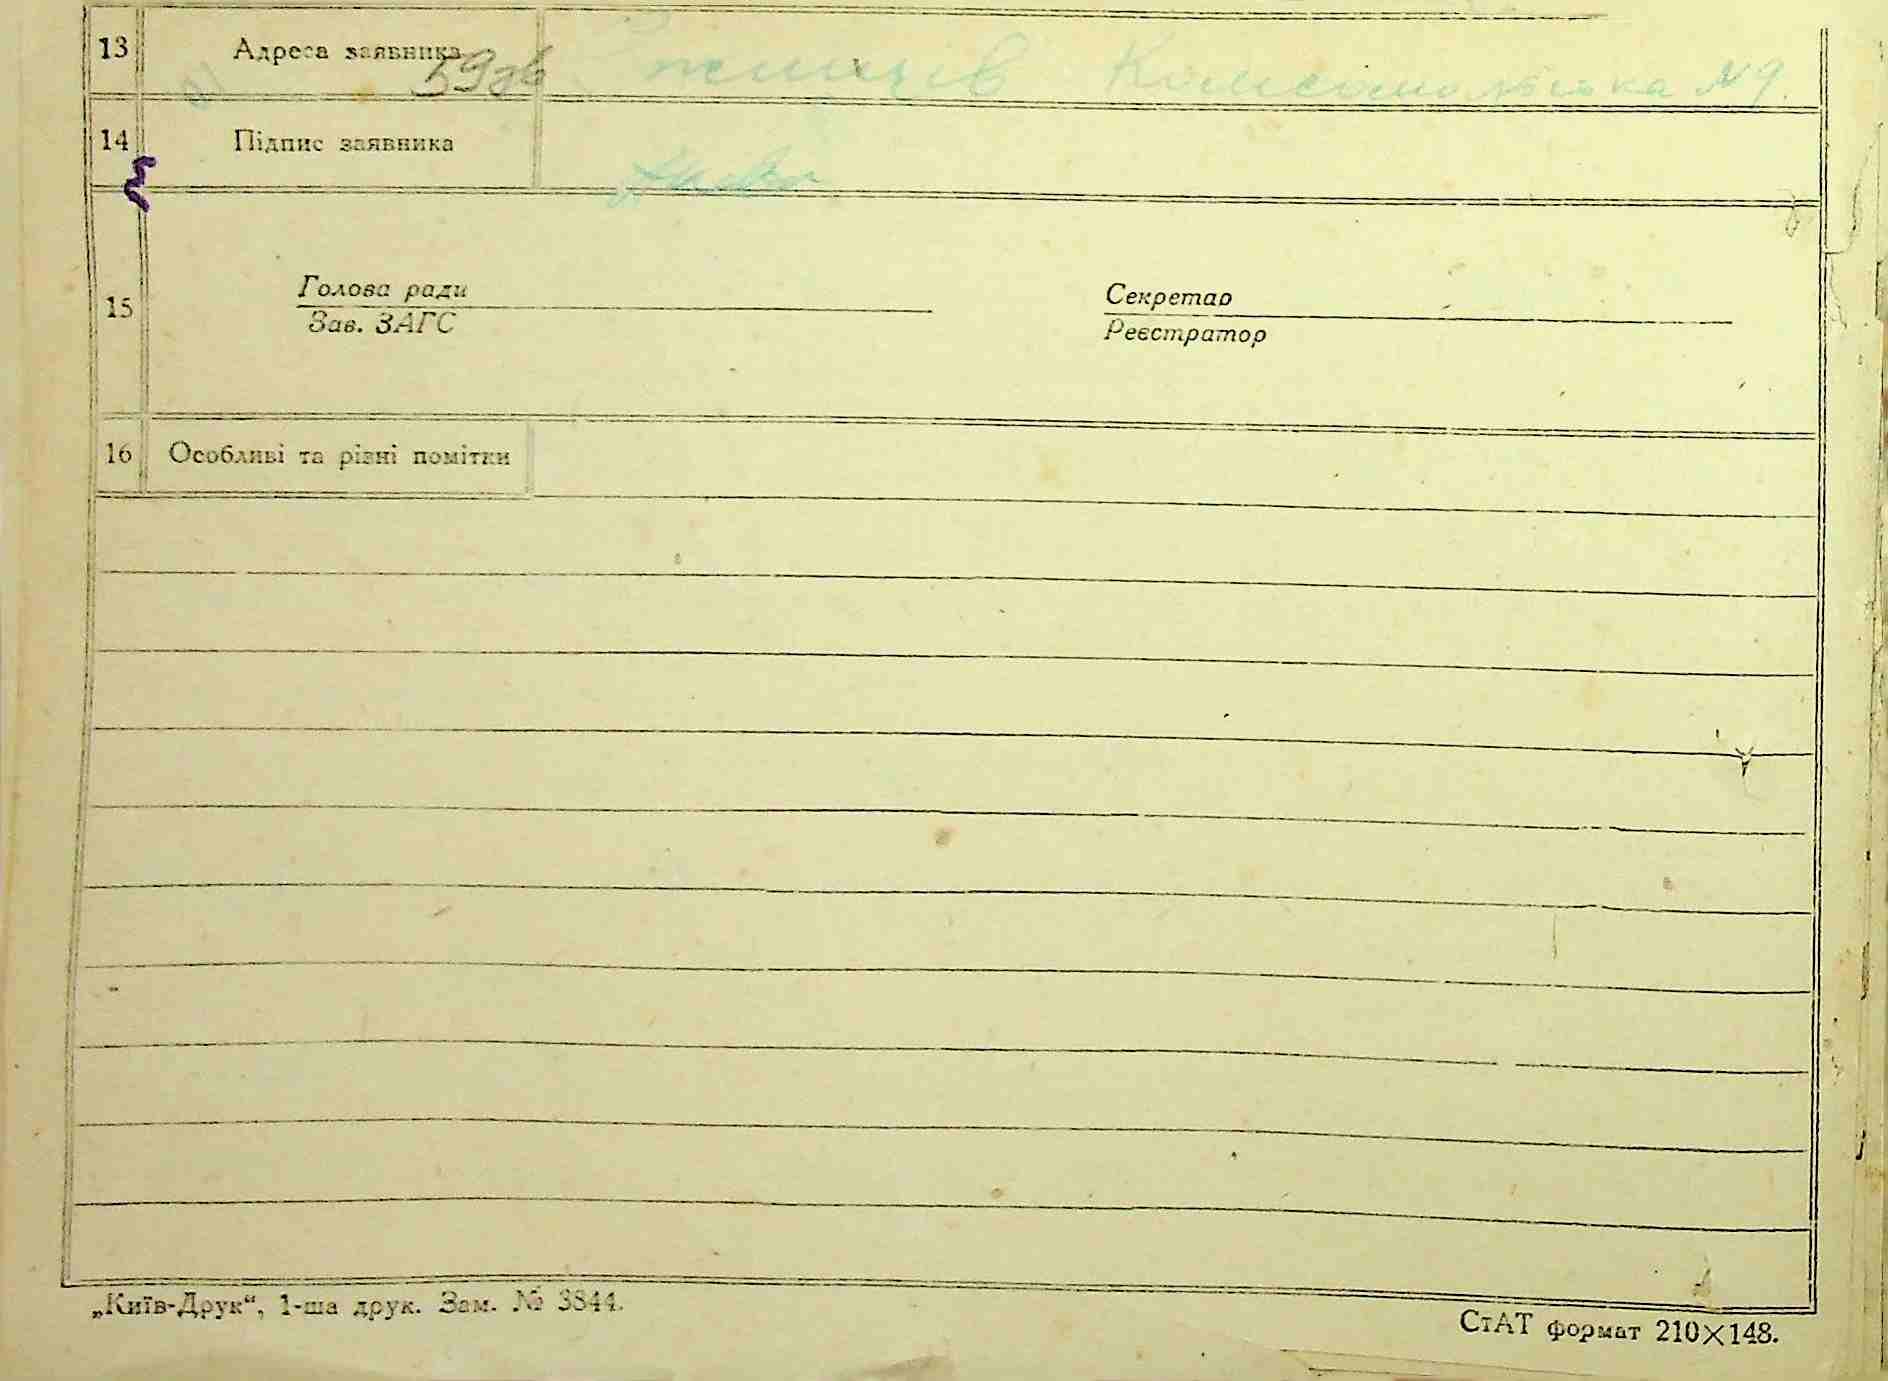 13 Адреса заявника Ржищів Комсомольська №9.
59зв
14 Підпис заявника
15
Голова ради Секретар
Зав. ЗАГС Реєстратор
16 Особливі та різні помітки
„Київ-Друк“, 1-ша друк. Зам. № 3844.
СтАТ формат 210×148.